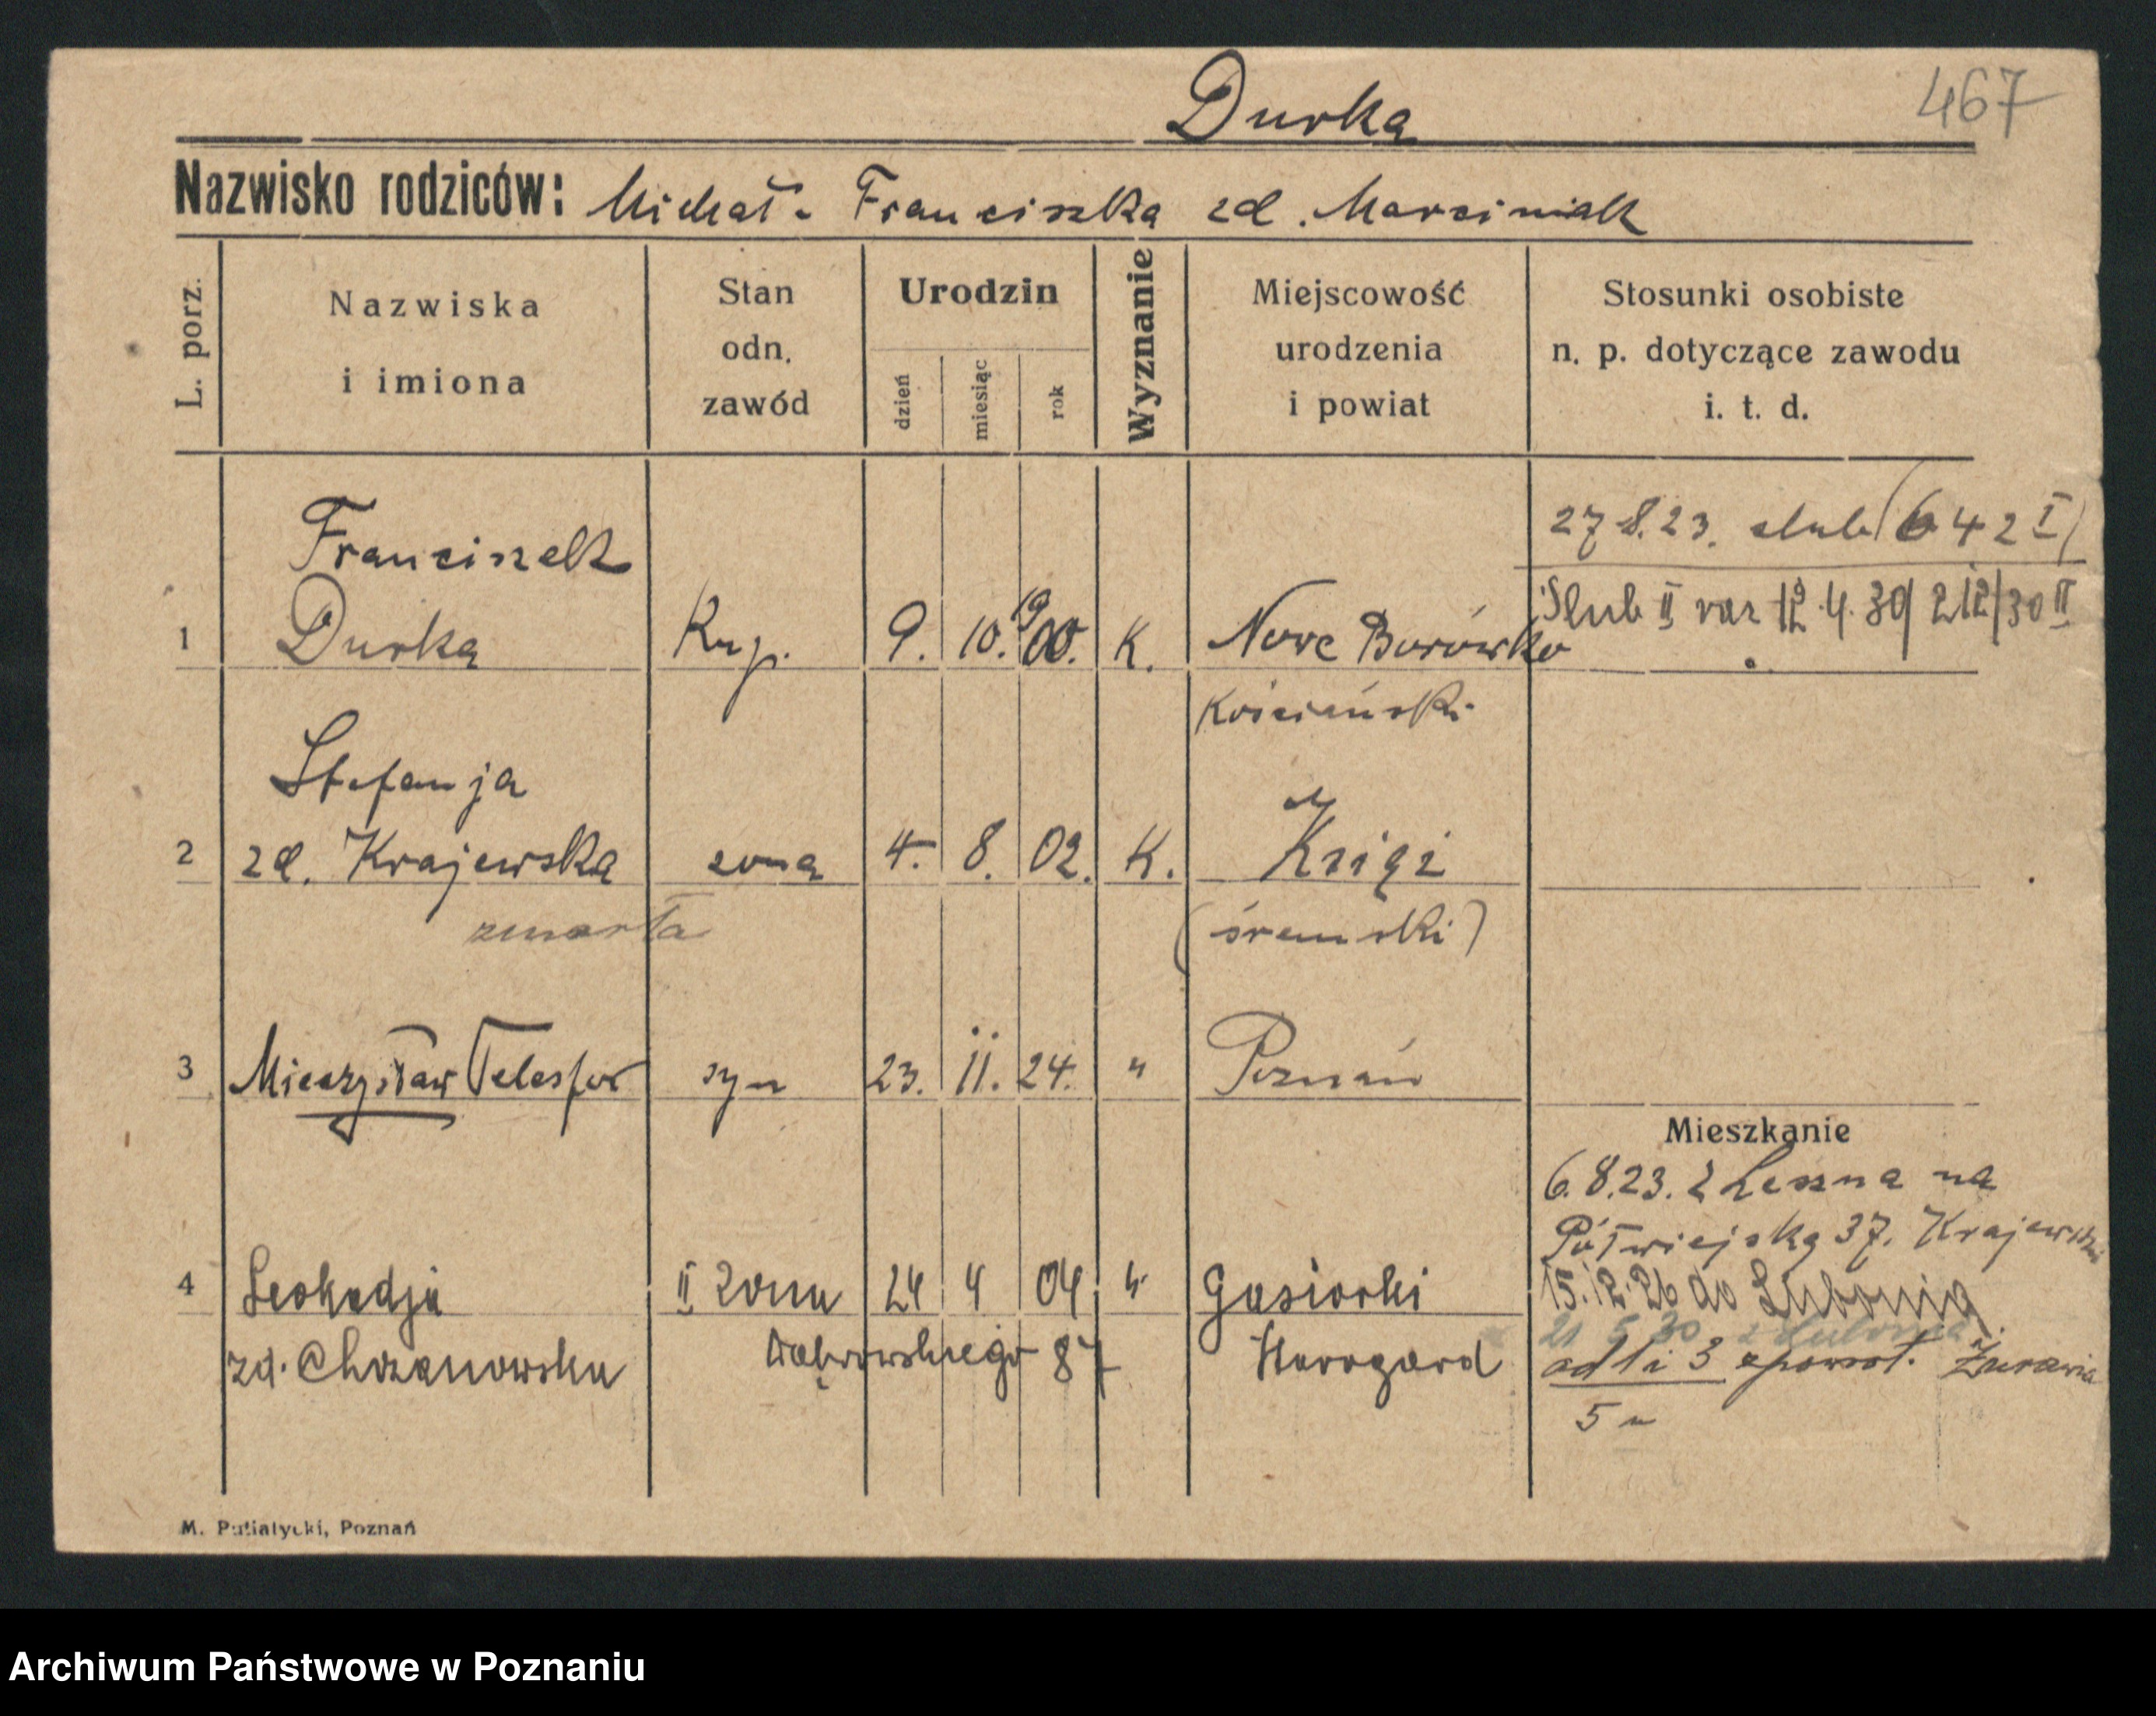 467
Durka
Nazwisko rodziców: Michał. Franciszka zd. Marciniak
L. porz.
Nazwiska
i imiona
Stan
odn.
zawód
Urodzin
dzień
miesiąc
rok
Wyznanie
Miejscowość
urodzenia
i powiat
Stosunki osobiste
n. p. dotyczące zawodu
i. t. d.
27.8.23. slub (642 I)
Slub II raz 12.4.30/212/30 II
Franciszek
1 Durka Kup. 9. 10. 1900. K. Nowe Borówko
Kościański
Stefanja
2 zd. Krajewska zona 4. 8. 02. K. Książ
zmarła (śremski)
3 Mieczysław Telesfor syn 23. 11. 24. " Poznań
Mieszkanie
6.8.23. z Leszna na
Półwiejską 37. Krajewski
15.12.26 do Lubonia
21 5 30 z Lubonia
4 Leokadja II zona 24 4 04 "
zd. Chrzanowska Dąbrowskiego 87
ad 1 i 3 zpowrot. Żurawia
5
M. Putiatycki, Poznań
Archiwum Państwowe w Poznaniu